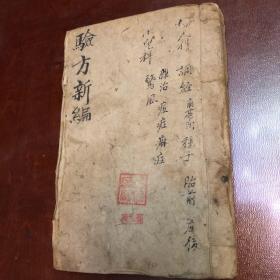 驗方新編
婦科 調經 種子 胎前 產後
小兒科 驚風
雜治 痘症 麻症